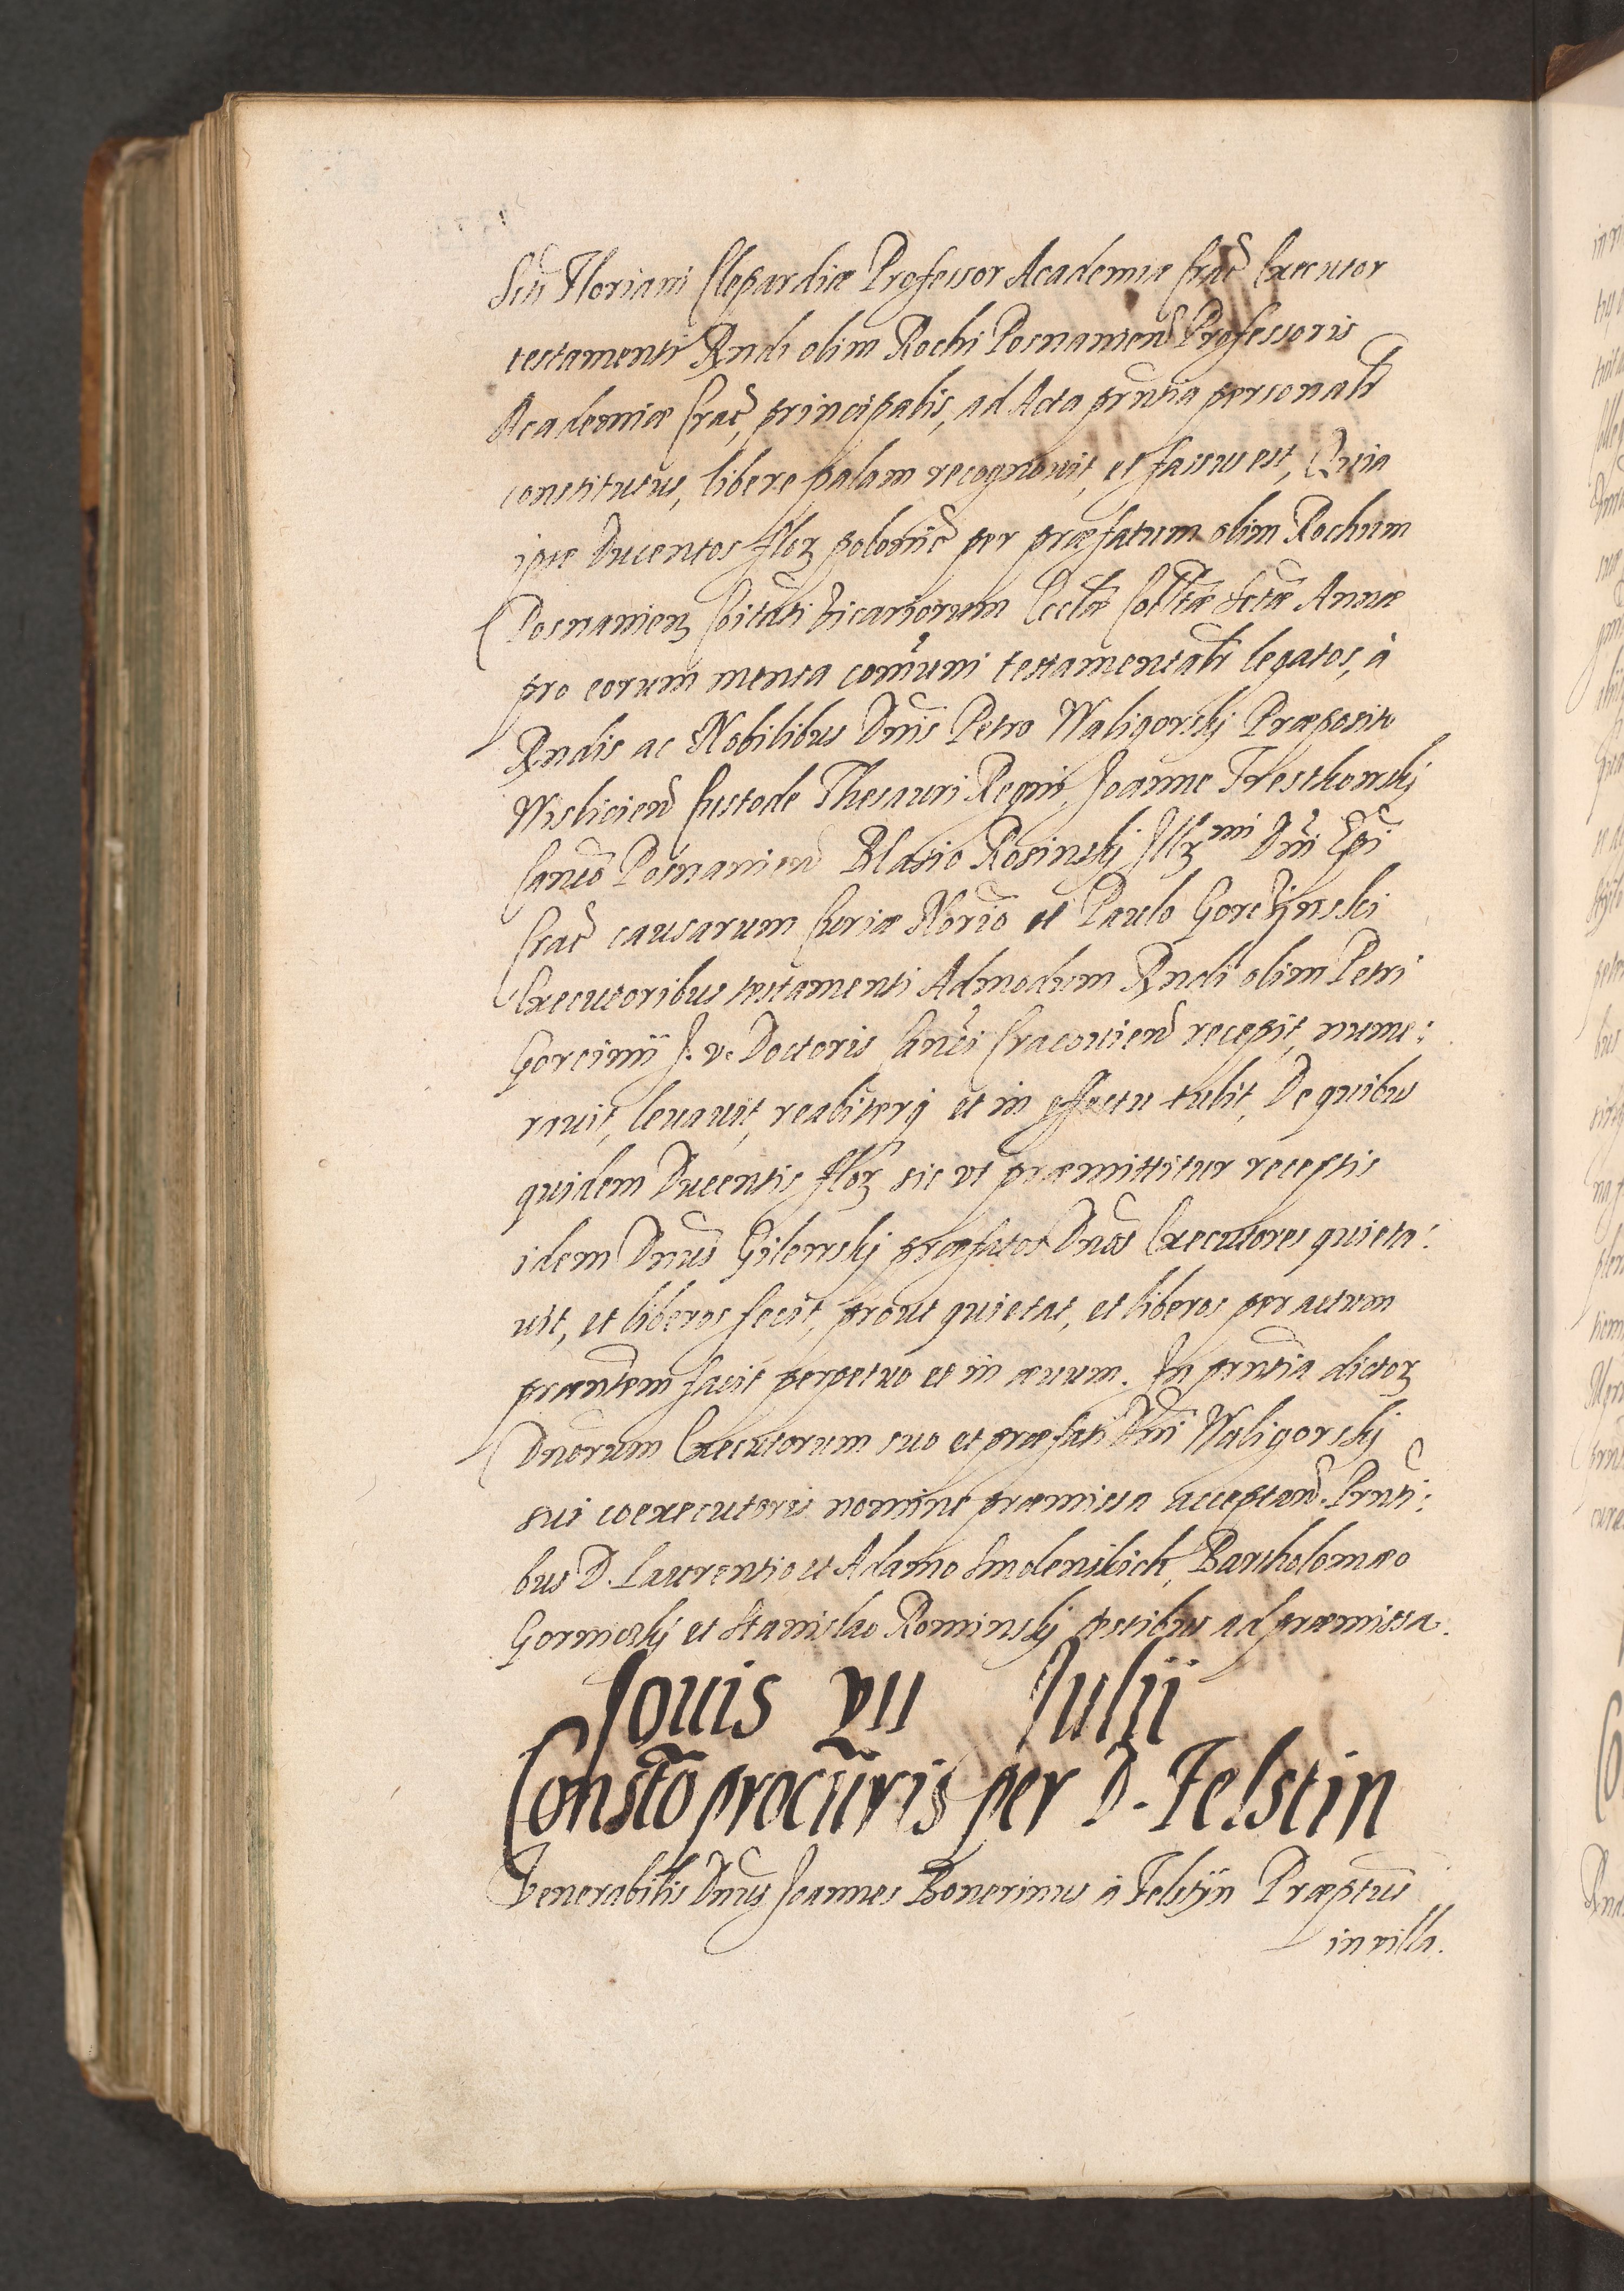 Scti Floriani Clepardiæ Professor Academiæ Crac Executor
testamenti Rndi olim Rochi Posnanien Professoris
Academiæ Crac, principalis, ad Acta prntia personalr
constitutus, libere palam recognouit, et fassus est, Quia
ipse Ducentos flor polonic per præfatum olim Rochum
Posnanien Coitati Vicariorum Eccliæ Colltæ Sctæ Annæ
pro eorum mensa comuni testamentalr legatos, à
Rndis ac Nobilibus Dnis Petro Waligorskj Præposito
Wislicien Custode Thesauri Regni, Joanne Freskonskj
Canco Posnanien Blasio Rosinskj Illrmi Dni Epi
Crac causarum Curiæ Norio et Paulo Gorczÿnski
Executoribus testamenti Admodum Rndi olim Petri
Gorcinii J. v. Doctoris Canci Cracouien recepit, nume:
rauit, leuauit, realiterq et in effectu tulit, De quibus
quidem Ducentis flor sic vt præmittitur receptis
idem Dnus Gilewskj præfatos Dnos Executores quieta:
uit, et liberos fecit, prout quietat, et liberos per actum
præntem facit perpetuo et in æuum. In prntia dictor
Dnorum Executorum suo et præfati Dni Waligorskj
sui coexecutoris nomine præmissa acceptan. Prnti:
bus D. Laurentio et Adamo Smolenskich, Bartholomæo
Gormeskj et Stanislao Rominskj testibus ad præmissa.
Jouis vii Julii
Conscto procuris per D. Felstin
Venerabilis Dnus Joannes Bonerinus à Felstÿn Præptus
in villa.